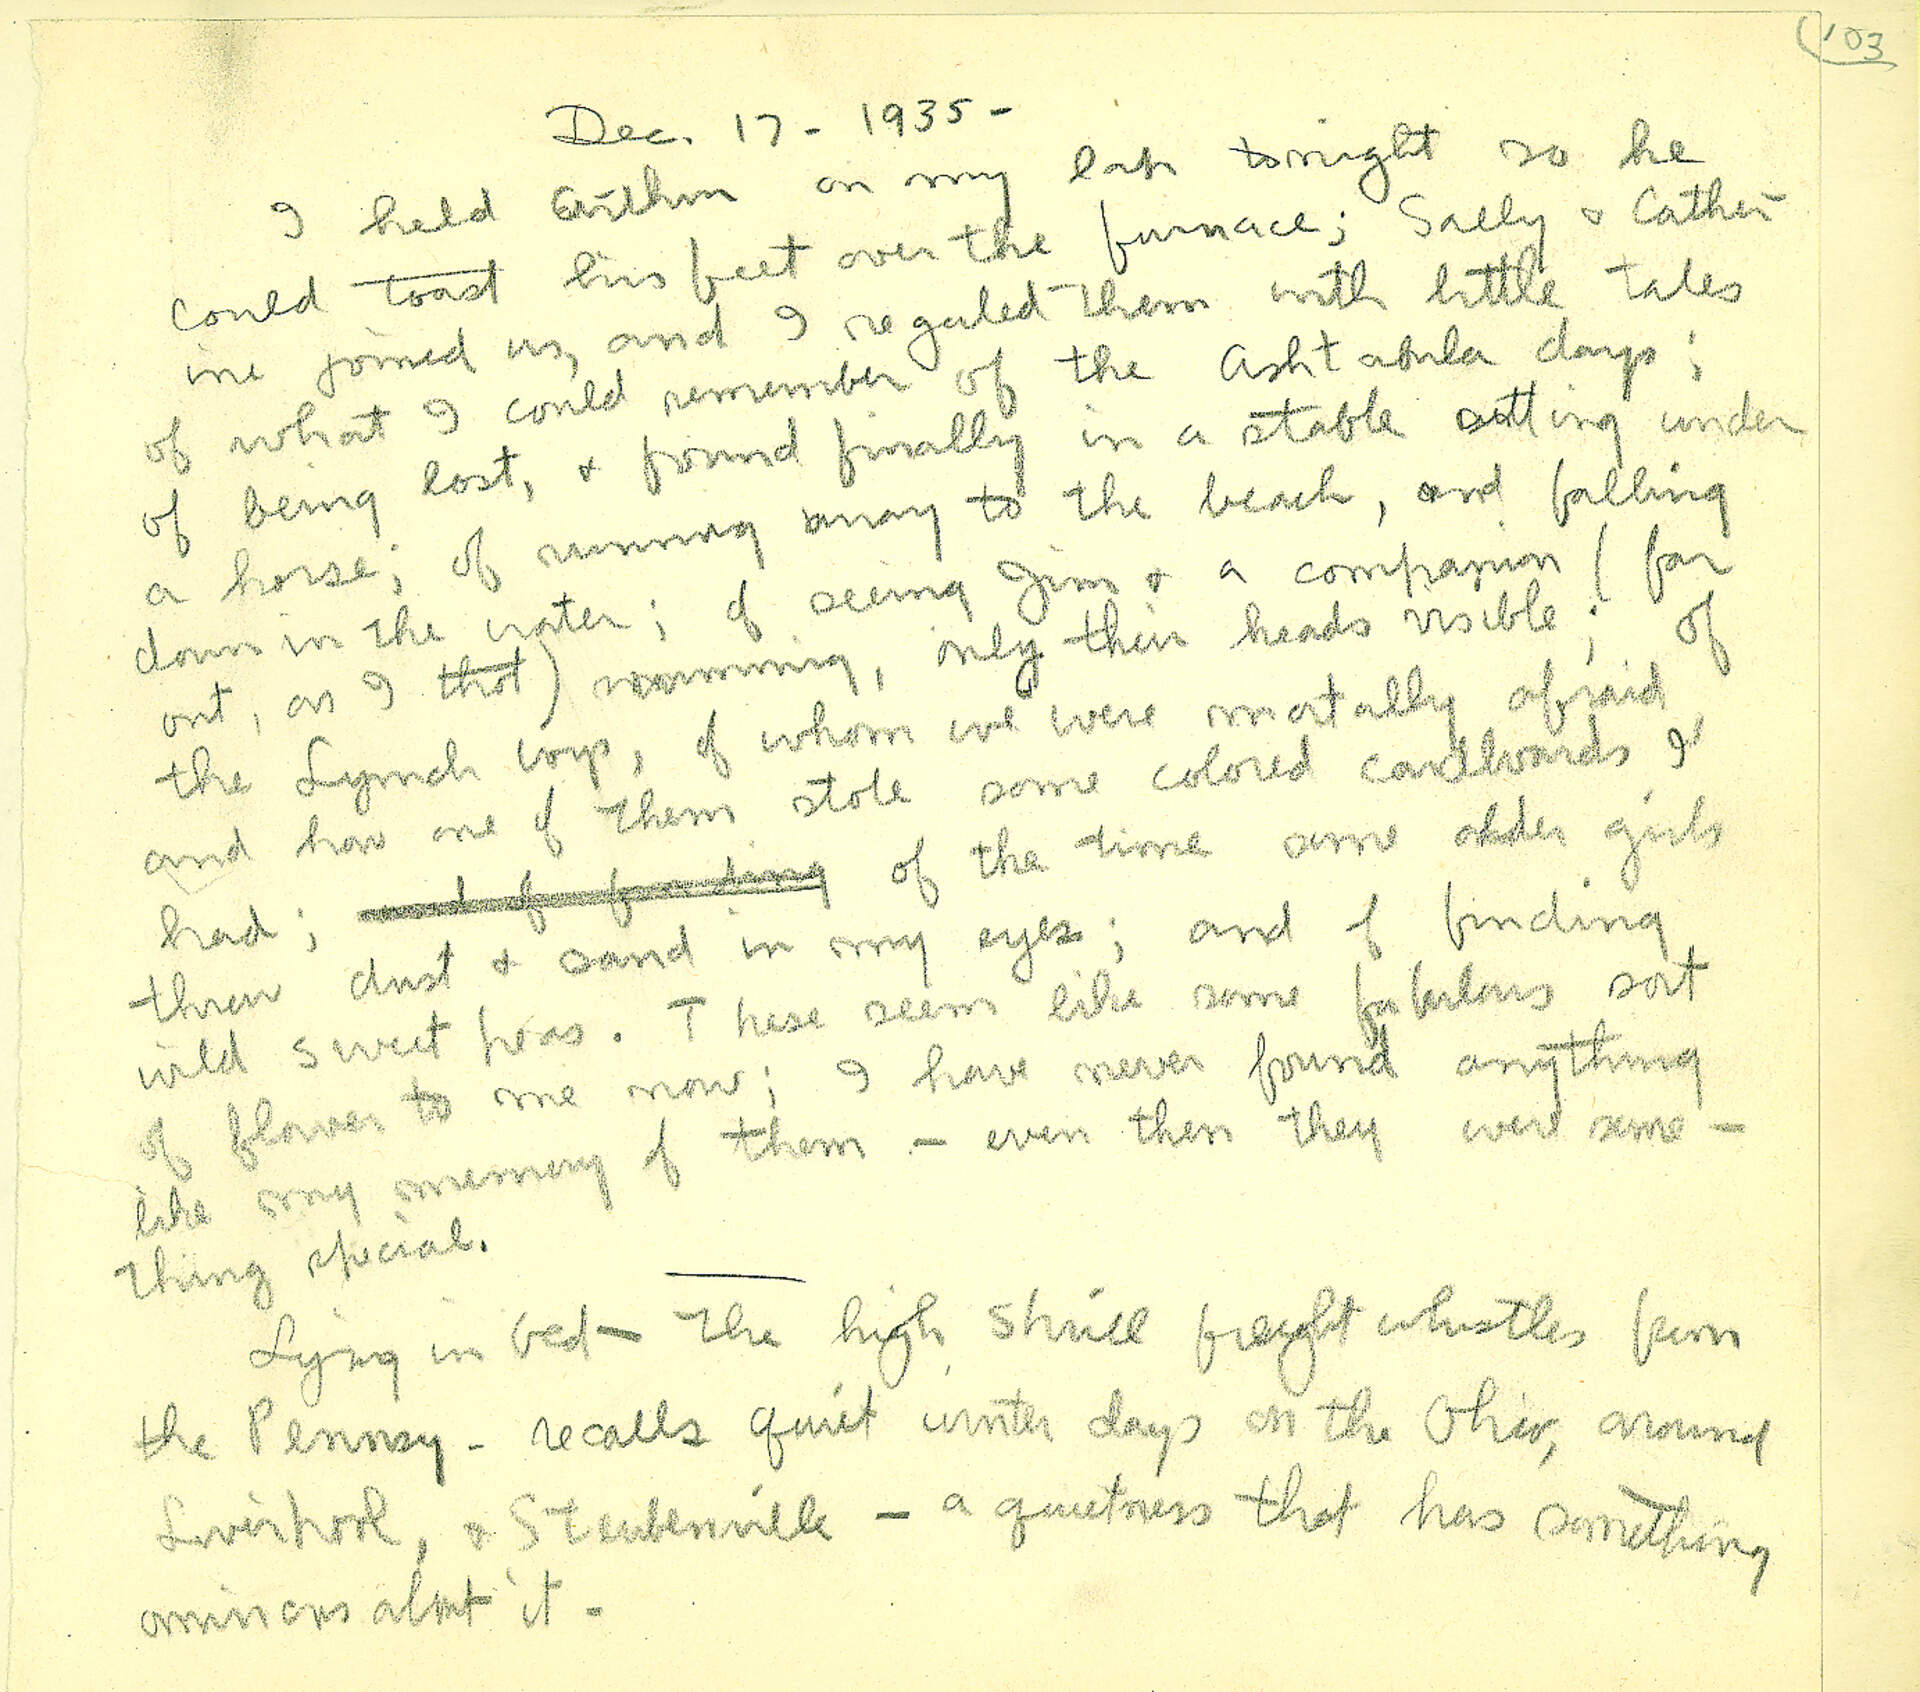 ('03
Dec. 17 - 1935 -
I held Arthur on my lap tonight so he
could toast his feet over the furnace; Sally & Cather-
ine joined us, and I regaled them with little tales
of what I could remember of the Ashtabula days;
of being lost, & found finally in a stable sitting under
a horse; of running away to the beach, and falling
down in the water; of seeing Jim & a companion (far
out, as I thot) swimming, only their heads visible; of
the Lynch boys, of whom we were mortally afraid
and how one of them stole some colored cardboards I
had; and of finding of the time some older girls
threw dust & sand in my eyes; and of finding
wild sweet peas. These seem like some fabulous sort
of flower to me now; I have never found anything
like my memory of them - even then they were some-
thing special.
Lying in bed - the high shrill freight whistles from
the Pennsy - recalls quiet winter days on the Ohio, around
Liverpool, & Steubenville - a quietness that has something
ominous about it -